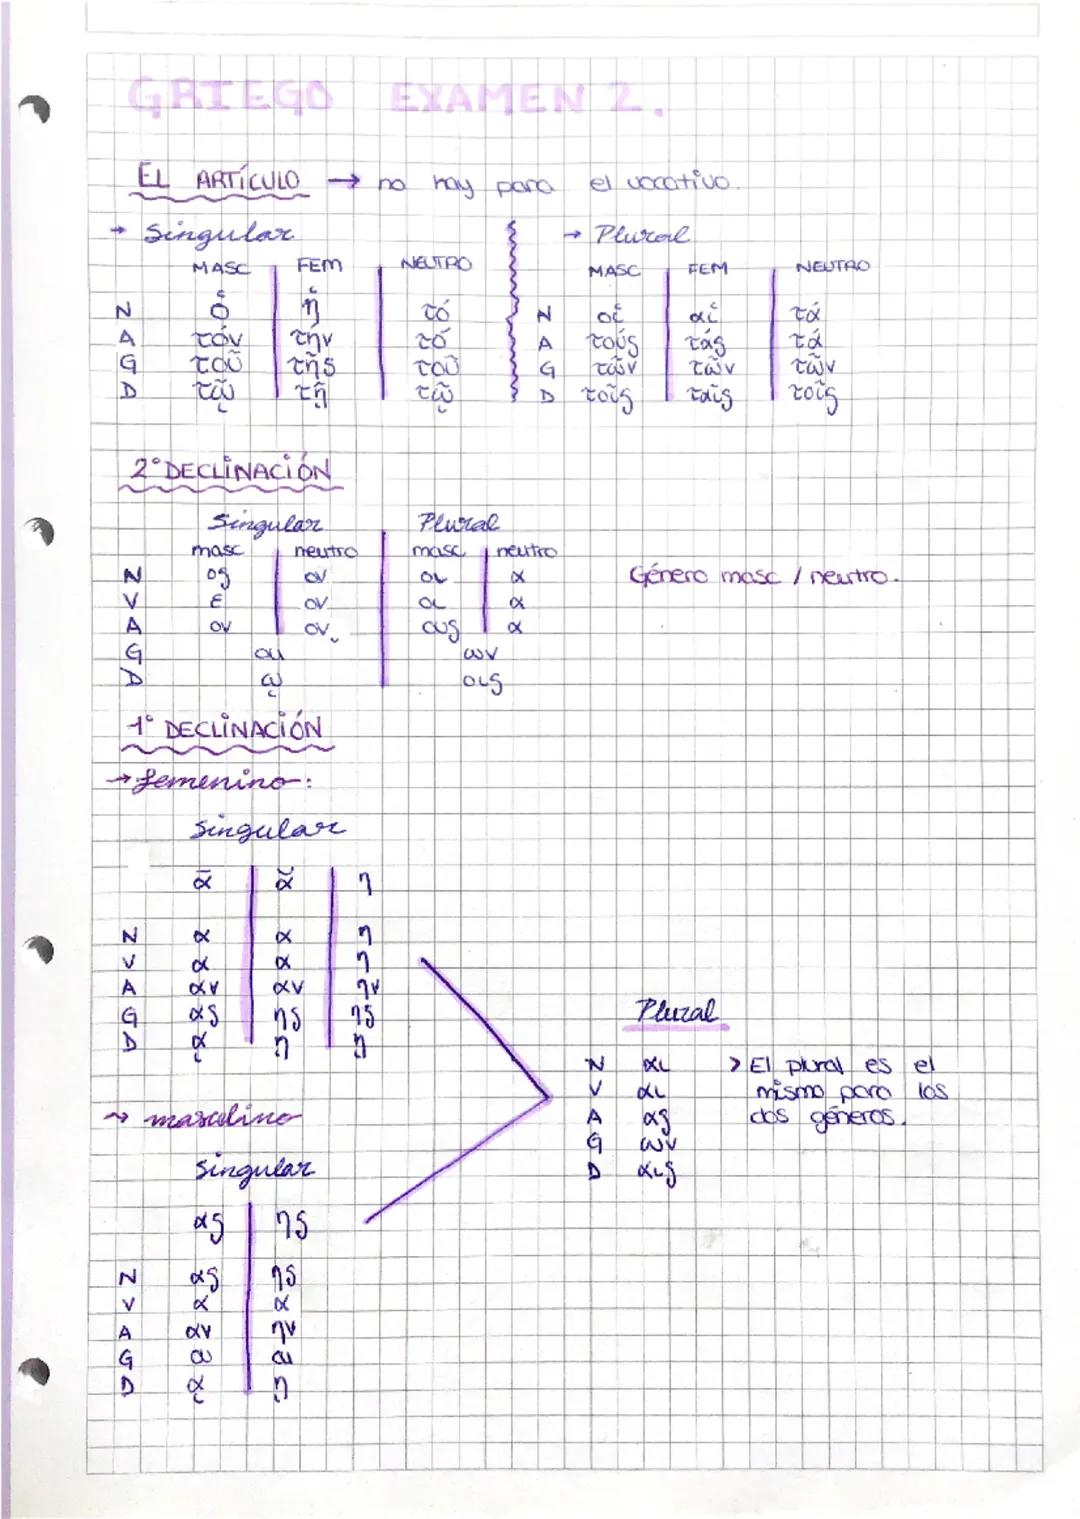 GRIEGO EXAMEN 2.
EL ARTÍCULO → no hay para el vocativo.
→ Singular
MASC FEM NEUTRO
N ὁ ἡ τό
A τόν τήν τό
G τοῦ τῆς τοῦ
D τῷ τῇ τῷ
→ Plural
MASC FEM NEUTRO
N οἱ αἱ τά
A τούς τάς τά
G τῶν τῶν τῶν
D τοῖς ταῖς τοῖς
2º DECLINACIÓN
Singular Plural
masc neutro masc neutro
N ος ον οι α
V ε ον οι α
A ον ον ους α
G ου ων
D ῳ οις
Género masc / neutro.
1º DECLINACIÓN
→ femenino:
Singular
ᾱ ᾰ η
N α α η
V α α η
A αν αν ην
G ας ης ης
D ᾳ ῃ ῃ
→ masculino
Singular
ας ης
N ας ης
V α α
A αν ην
G ου ου
D ᾳ ῃ
Plural
N αι
V αι
A ας
G ων
D αις
> El plural es el
mismo para los
dos géneros.